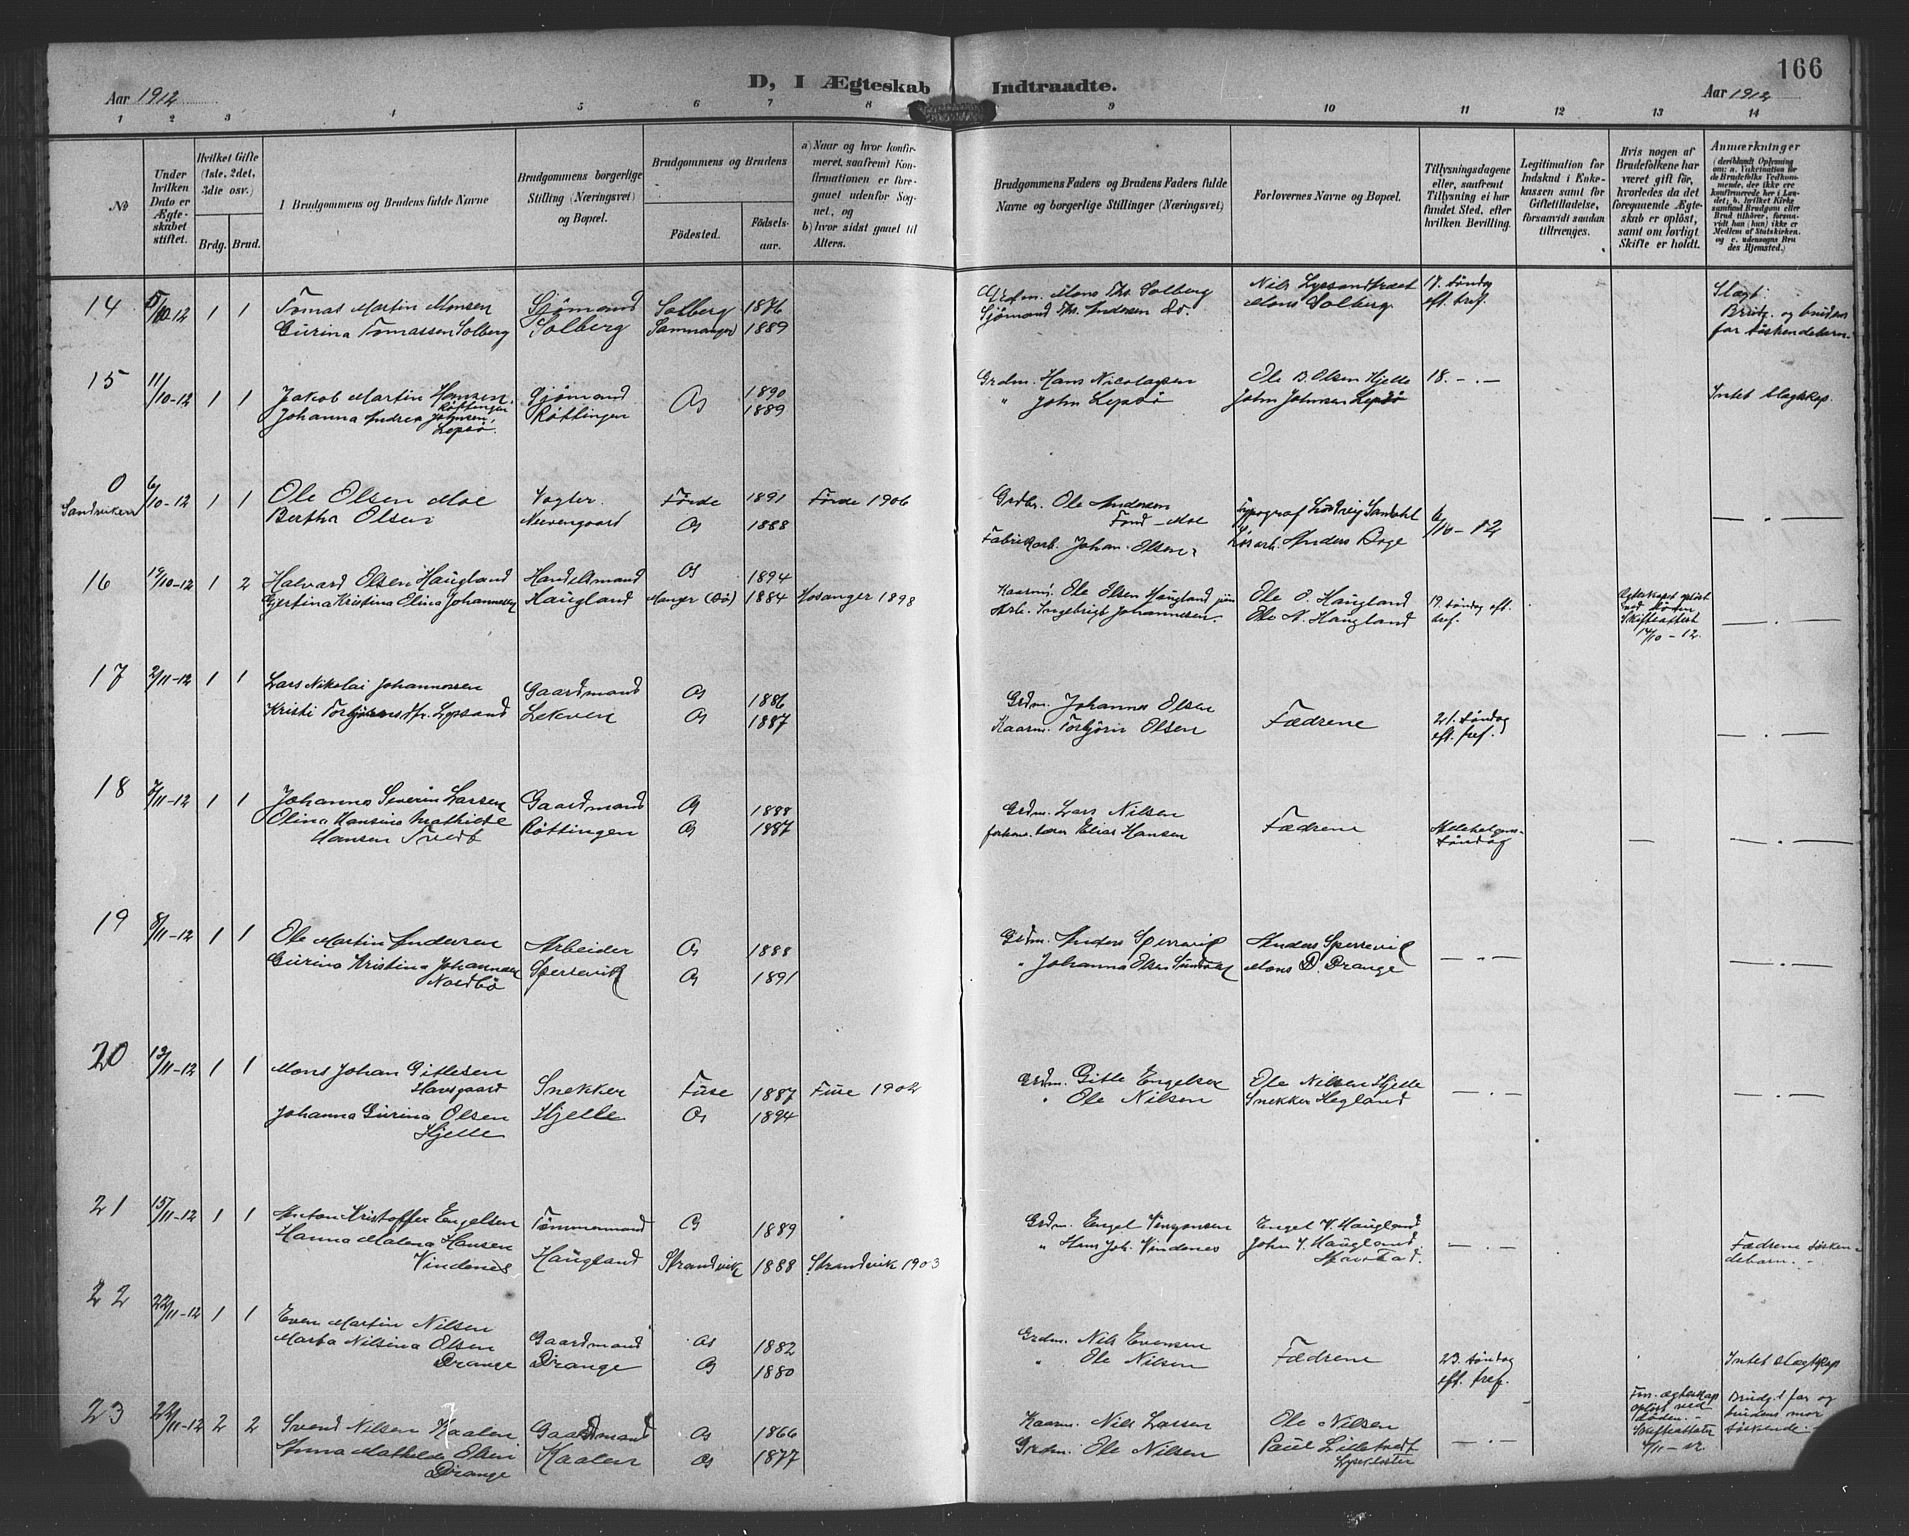 166
D, I Ægteskab Indtraadte.
Aar 1912
Aar 1912
1 2 3 4 5 6 7 8 9 10 11 12 13 14
№
Under hvilken Dato er Ægteskabet stiftet.
Hvilket Gifte (1ste, 2det, 3die osv.)
Brdg. Brud.
1 Brudgommens og Brudens fulde Navne
Brudgommens borgerlige Stilling (Næringsvei) og Bopæl.
Brudgommens og Brudens
Födested.
Födsels-aar.
a) Naar og hvor konfirmeret, saafremt Konfirmationen er foregaaet udenfor Sognet, og
b) hvor sidst gaaet til Alters.
Brudgommens Faders og Brudens Faders fulde Navne og borgerlige Stillinger (Næringsvei)
Forlovernes Navne og Bopæl.
Tillysningsdagene eller, saafremt Tillysning ei har fundet Sted, efter hvilken Bevilling.
Legitimation for Indskud i Enkekassen samt for Giftetilladelse, forsaavidt saadan tiltrænges.
Hvis nogen af Brudefolkene har været gift før, hvorledes da det foregaaende Ægteskab er oplöst, samt om lovligt Skifte er holdt.
Anmærkninger
14 5/10-12 1 1 Tomas Martin Monsen Sjømand Solberg 1876
Gurina Tomassen Solberg Solberg Samnanger 1889
Grdm. Mons Ths. Solberg Nils Lyssandtræet 17. søndag
Sjømand Ths. Andersen do. Mons Solberg eft. tref.
Slægt: Brudg. og brudens far søskendebarn.
15 11/10-12 1 1 Jakob Martin Hansen Røttingen Sjømand Os 1890
Johanna Andrea Johnsen Lepsø Røttingen 1889
Grdm. Hans Nicolaysen Ole B. Olsen Hjelle 18. - . -
" John Lepsø John Johnsen Lepsø
Intet slægtskap.
0 Sandviken 6/10-12 1 1 Ole Olsen Moe Vogter Førde 1891 Førde 1906
Bertha Olsen Neevengaard Os 1888
Grdbr. Ole Andersen Typograf Sandahl 6/10-12
Fabrikarb. Johan Olsen Anders Boge
— . —
16 19/10-12 1 2 Halvard Olsen Haugland Handelsmand Os 1894
Gjertina Kristina Elina Johannessen Haugland Manger (Bø) 1884 Hosanger 1898
Kaarm. Ole Olsen Haugland Ole O. Haugland 19. søndag eft. tref.
Arb. Ingebrigt Johannesen Ole N. Haugland
Ægteskapet opløst ved døden Skifteattest 14/10-12.
— . —
17 2/11-12 1 1 Lars Nikolai Johannessen Gaardmand Os 1886
Kristi Torbjørnsdtr. Lysand Lekven Os 1887
Grdm. Johannes Olsen Fædrene 21. søndag
Kaarm. Torbjørn Olsen eft. tref.
— . —
18 7/11-12 1 1 Johannes Severin Larsen Gaardmand Os 1888
Olina Hansine Mathilde Hansen Tvedt Røttingen Os 1887
Grdm. Lars Nilsen Fædrene
Elias Hansen søndag
— — . —
19 8/11-12 1 1 Ole Martin Andersen Arbeider Os 1888
Gurina Kristina Johannesen Nordbø Sperrevik Os 1891
Grdm. Anders Sperrevik Anders Sperrevik — . —
" Mons D. Drange
— . —
20 12/11-12 1 1 Mons Johan Gitlesen Havsgaard Snekker Fuse 1887 Fuse 1902
Johanna Gurina Olsen Hjelle Hjelle Os 1894
Grdm. Gitle Engelsen Ole Nilsen Hjelle — . —
" Ole Nilsen Snekker Hegland
— . —
21 15/11-12 1 1 Anton Kristoffer Engelsen Tømmermand Os 1889
Hanna Malena Hansen Vindenes Haugland Strandvik 1888 Strandvik 1903
Grdm. Engel Engel V. Haugland
" Hans Joh. Vindenes John V. Haugland — . —
Fædrene søskendebarn.
22 22/11-12 1 1 Even Martin Nilsen Gaardmand Os 1882
Marta Nilsina Olsen Drange Drange Os 1880
Grdm. Nils Evensen Fædrene 23. søndag
" Ole Nilsen eft. tref.
Intet slægtskap
23 22/11-12 2 2 Svend Nilsen Haalen Gaardmand Os 1866
Anna Mathilde Olsen Drange Haalen Os 1877
Kaarm. Nils Larsen Ole Nilsen — . —
Grdm. Ole Nilsen Paul Lysekloster
ægteskap opløst ved døden. Skifteattester
Brudg. far og brudens mor søskende